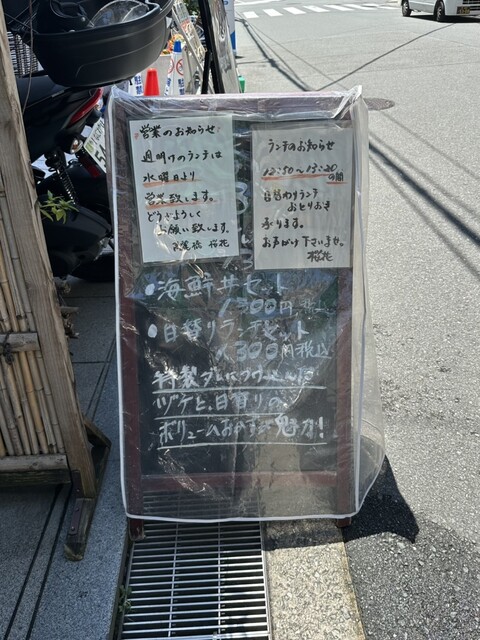 営業のお知らせ
週明けのランチは
水曜日より
営業致します。
どうぞよろしく
お願い致します。
桜花
ランチのお知らせ
12:50～13:20
の間
日替わりランチ
おとりおき
承ります。
お声がけ下さいませ。
桜花
●海鮮丼セット
●日替りランチセット
1300円税込
特製ダレにつけこんだ
ヅケと、日替りの
ボリュームおかずが魅力!